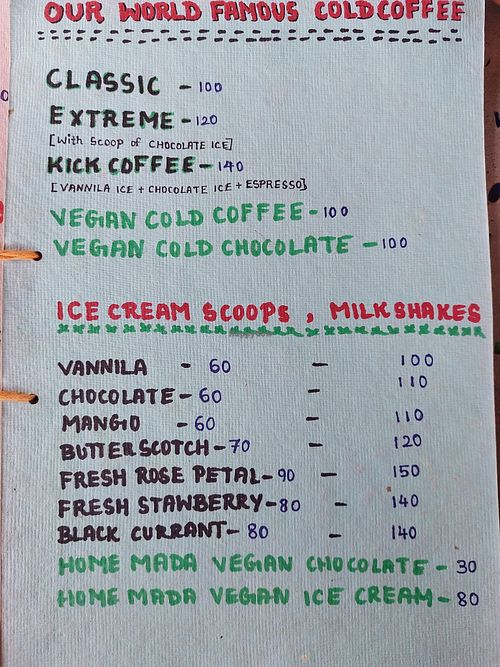 OUR WORLD FAMOUS COLD COFFEE
CLASSIC - 100
EXTREME - 120
[with scoop of CHOCOLATE ICE]
KICK COFFEE - 140
[VANNILA ICE + CHOCOLATE ICE + ESPRESSO]
VEGAN COLD COFFEE - 100
VEGAN COLD CHOCOLATE - 100
ICE CREAM SCOOPS , MILKSHAKES
VANNILA - 60 - 100
CHOCOLATE - 60 - 110
MANGO - 60 - 110
BUTTERSCOTCH - 70 - 120
FRESH ROSE PETAL - 90 - 150
FRESH STAWBERRY - 80 - 140
BLACK CURRANT - 80 - 140
HOME MADA VEGAN CHOCOLATE - 30
HOME MADA VEGAN ICE CREAM - 80